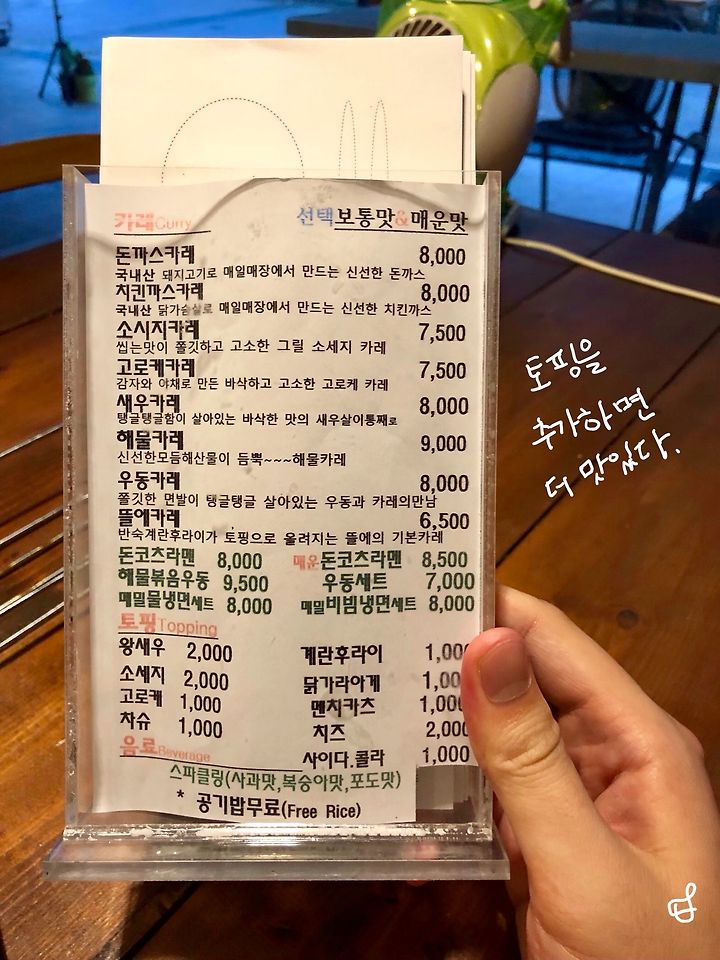 카레Curry 선택보통맛&매운맛
돈까스카레 8,000
국내산 돼지고기로 매일매장에서 만드는 신선한 돈까스
치킨까스카레 8,000
국내산 닭가슴살로 매일매장에서 만드는 신선한 치킨까스
소시지카레 7,500
씹는맛이 쫄깃하고 고소한 그릴 소세지 카레
고로케카레 7,500
감자와 야채로 만든 바삭하고 고소한 고로케 카레
새우카레 8,000
탱글탱글함이 살아있는 바삭한 맛의 새우살이통째로
해물카레 9,000
신선한모듬해산물이 듬뿍~~~해물카레
우동카레 8,000
쫄깃한 면발이 탱글탱글 살아있는 우동과 카레의만남
뜰에카레 6,500
반숙계란후라이가 토핑으로 올려지는 뜰에의 기본카레
돈코츠라멘 8,000 매운돈코츠라멘 8,500
해물볶음우동 9,500 우동세트 7,000
메밀물냉면세트 8,000 메밀비빔냉면세트 8,000
토핑Topping
왕새우 2,000 계란후라이 1,000
소세지 2,000 닭가라아게 1,000
고로케 1,000 멘치카츠 1,000
차슈 1,000 치즈 2,000
음료Beverage 사이다.콜라 1,000
스파클링(사과맛,복숭아맛,포도맛)
* 공기밥무료(Free Rice)
토핑을
추가하면
더 맛있다.